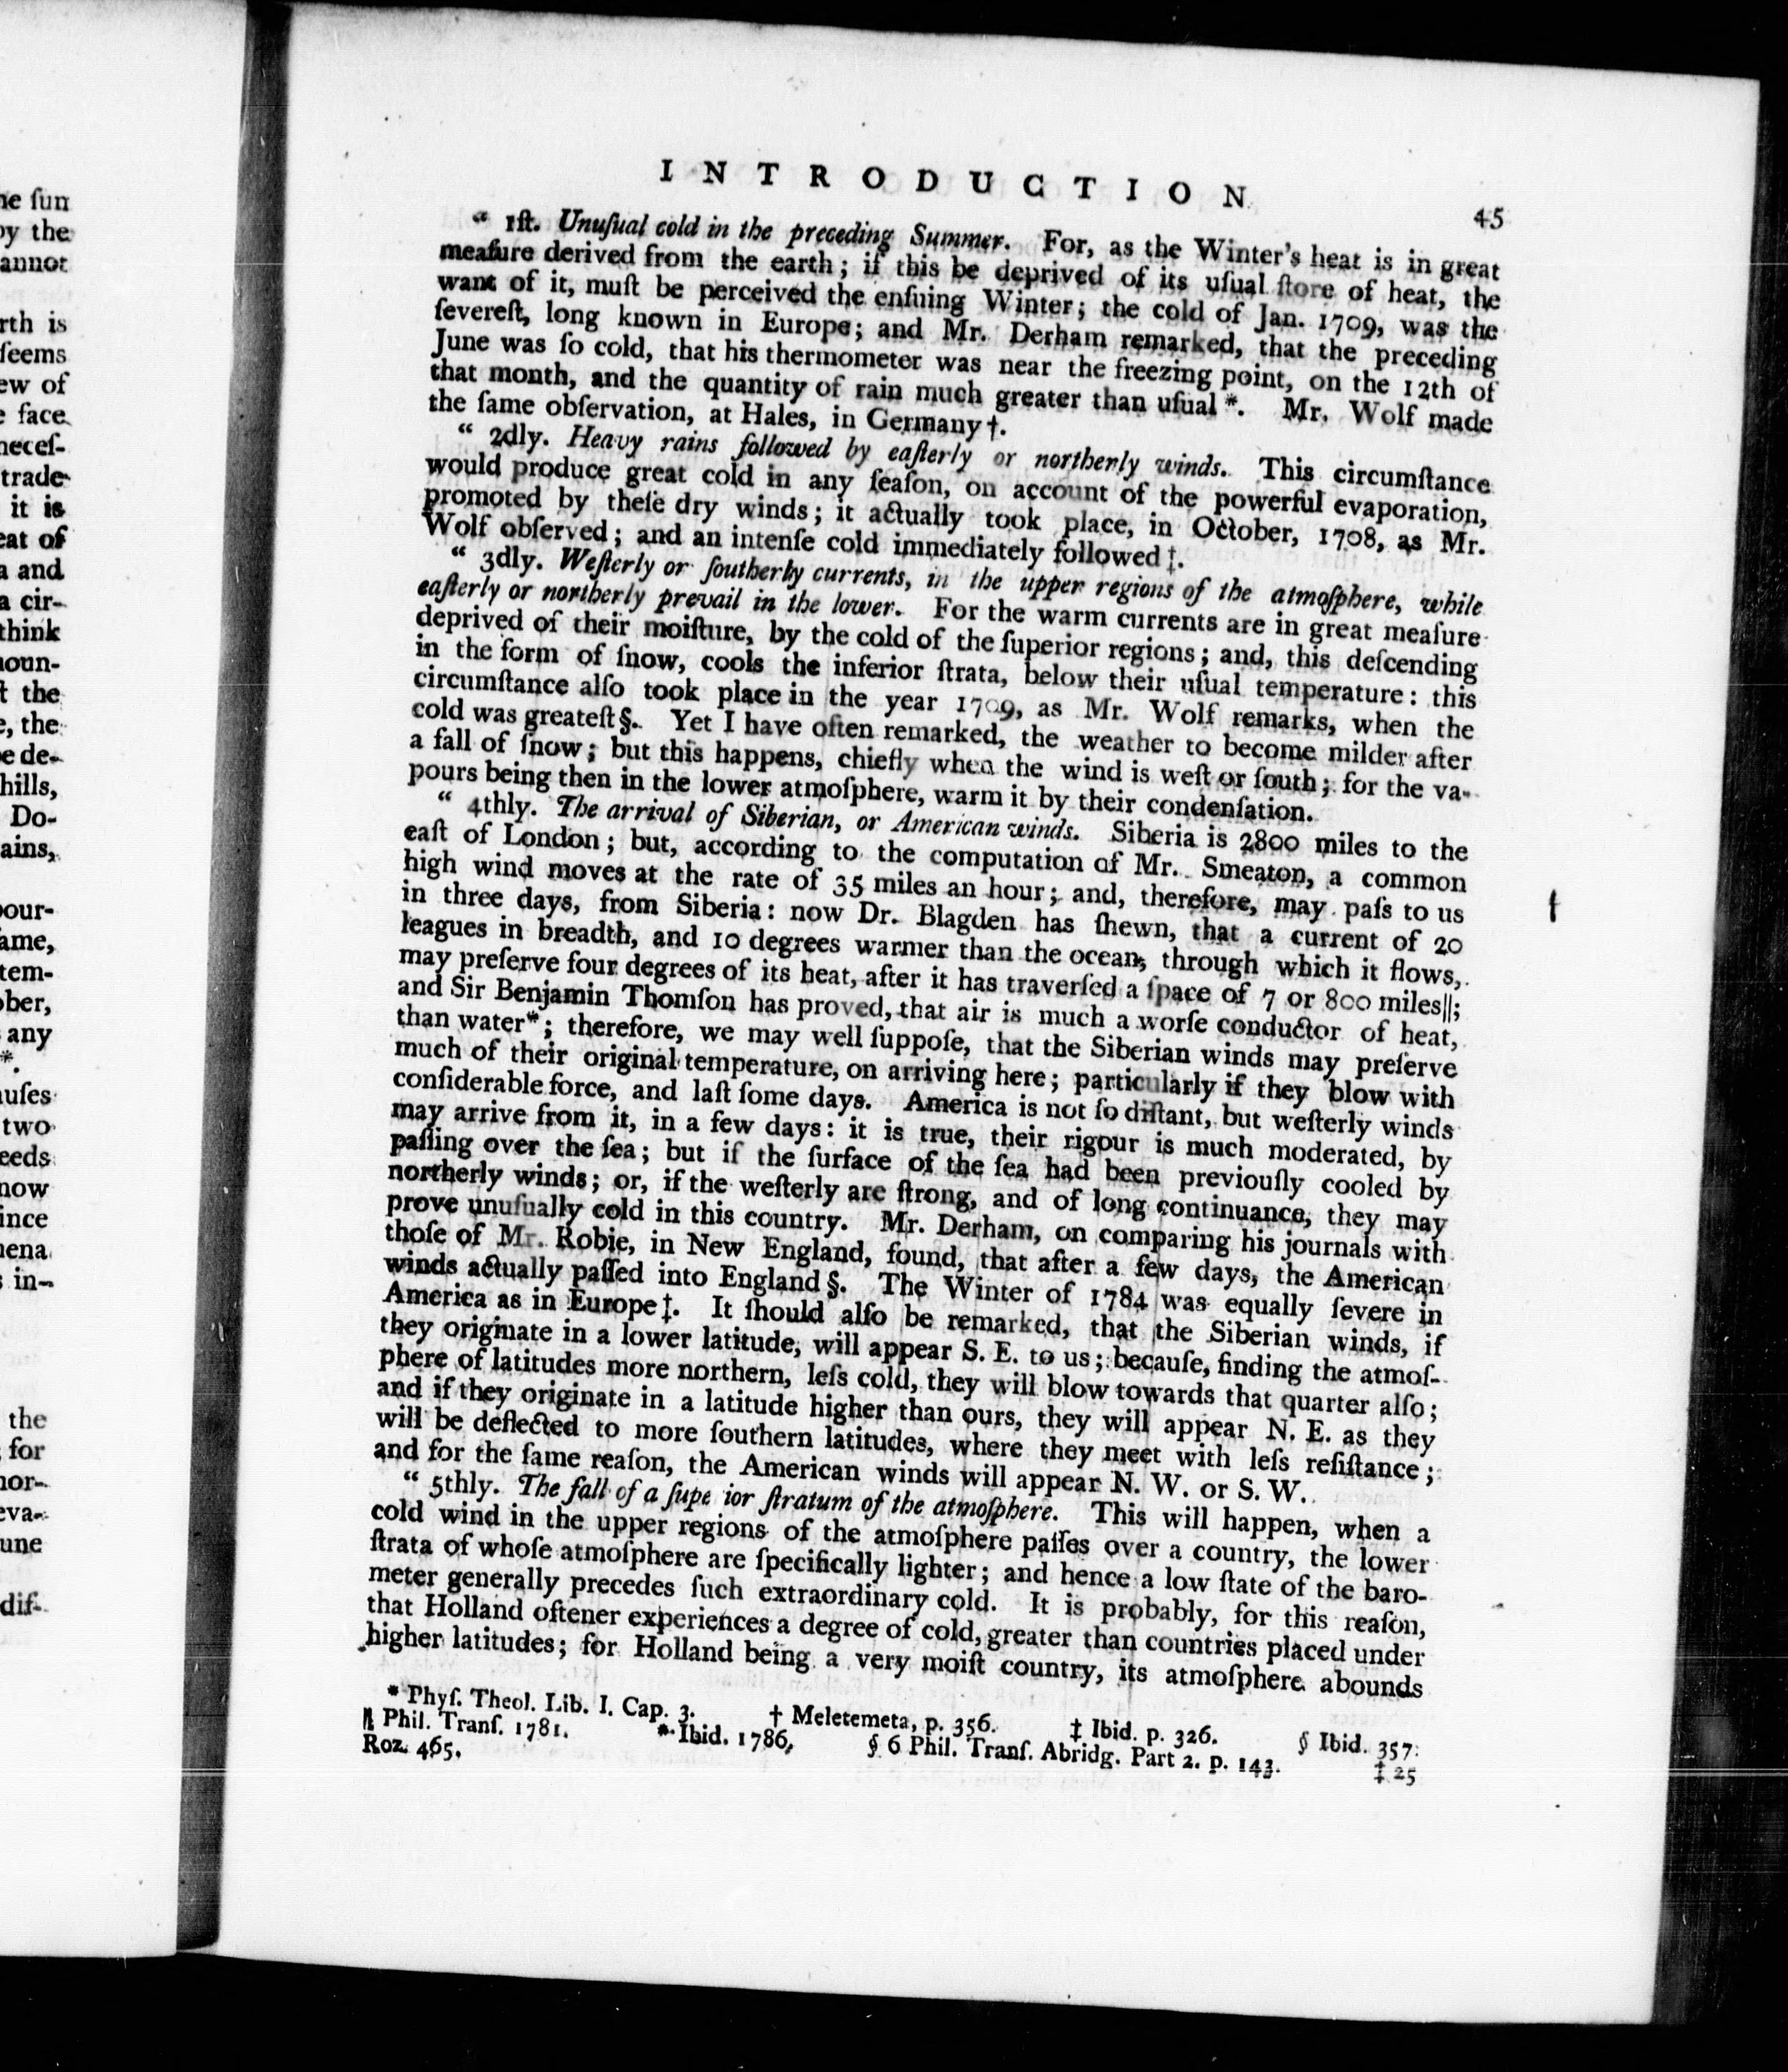 INTRODUCTION
45
“ 1ſt. Unuſual cold in the preceding Summer. For, as the Winter's heat is in great
meaſure derived from the earth; if this be deprived of its uſual ſtore of heat, the
want of it, muſt be perceived the enſuing Winter; the cold of Jan. 1709, was the
ſevereſt, long known in Europe; and Mr. Derham remarked, that the preceding
June was ſo cold, that his thermometer was near the freezing point, on the 12th of
that month, and the quantity of rain much greater than uſual *. Mr. Wolf made
the ſame obſervation, at Hales, in Germany †.
“ 2dly. Heavy rains followed by eaſterly or northerly winds. This circumſtance
would produce great cold in any ſeaſon, on account of the powerful evaporation,
promoted by theſe dry winds; it actually took place, in October, 1708, as Mr.
Wolf obſerved; and an intenſe cold immediately followed ‡.
“ 3dly. Weſterly or ſoutherly currents, in the upper regions of the atmoſphere, while
eaſterly or northerly prevail in the lower. For the warm currents are in great meaſure
deprived of their moiſture, by the cold of the ſuperior regions; and, this deſcending
in the form of ſnow, cools the inferior ſtrata, below their uſual temperature: this
circumſtance alſo took place in the year 1709, as Mr. Wolf remarks, when the
cold was greateſt §. Yet I have often remarked, the weather to become milder after
a fall of ſnow; but this happens, chiefly when the wind is weſt or ſouth; for the va-
pours being then in the lower atmoſphere, warm it by their condenſation.
“ 4thly. The arrival of Siberian, or American winds. Siberia is 2800 miles to the
eaſt of London; but, according to the computation of Mr. Smeaton, a common
high wind moves at the rate of 35 miles an hour; and, therefore, may paſs to us
in three days, from Siberia: now Dr. Blagden has ſhewn, that a current of 20
leagues in breadth, and 10 degrees warmer than the ocean, through which it flows,
may preſerve four degrees of its heat, after it has traverſed a ſpace of 7 or 800 miles ||;
and Sir Benjamin Thomſon has proved, that air is much a worſe conductor of heat,
than water *; therefore, we may well ſuppoſe, that the Siberian winds may preſerve
much of their original temperature, on arriving here; particularly if they blow with
conſiderable force, and laſt ſome days. America is not ſo diſtant, but weſterly winds
may arrive from it, in a few days: it is true, their rigour is much moderated, by
paſſing over the ſea; but if the ſurface of the ſea had been previouſly cooled by
northerly winds; or, if the weſterly are ſtrong, and of long continuance, they may
prove unuſually cold in this country. Mr. Derham, on comparing his journals with
thoſe of Mr. Robie, in New England, found, that after a few days, the American
winds actually paſſed into England §. The Winter of 1784 was equally ſevere in
America as in Europe ‡. It ſhould alſo be remarked, that the Siberian winds, if
they originate in a lower latitude, will appear S. E. to us; becauſe, finding the atmoſ-
phere of latitudes more northern, leſs cold, they will blow towards that quarter alſo;
and if they originate in a latitude higher than ours, they will appear N. E. as they
will be deflected to more ſouthern latitudes, where they meet with leſs reſiſtance;
and for the ſame reaſon, the American winds will appear N. W. or S. W.
“ 5thly. The fall of a ſupe ior ſtratum of the atmoſphere. This will happen, when a
cold wind in the upper regions of the atmoſphere paſſes over a country, the lower
ſtrata of whoſe atmoſphere are ſpecifically lighter; and hence a low ſtate of the baro-
meter generally precedes ſuch extraordinary cold. It is probably, for this reaſon,
that Holland oftener experiences a degree of cold, greater than countries placed under
higher latitudes; for Holland being a very moiſt country, its atmoſphere abounds
* Phyſ. Theol. Lib. I. Cap. 3. † Meletemeta, p. 356. ‡ Ibid. p. 326. § Ibid. 357.
|| Phil. Tranſ. 1781. * Ibid. 1786. § 6 Phil. Tranſ. Abridg. Part 2. p. 143. ‡ 25
Roz. 465.